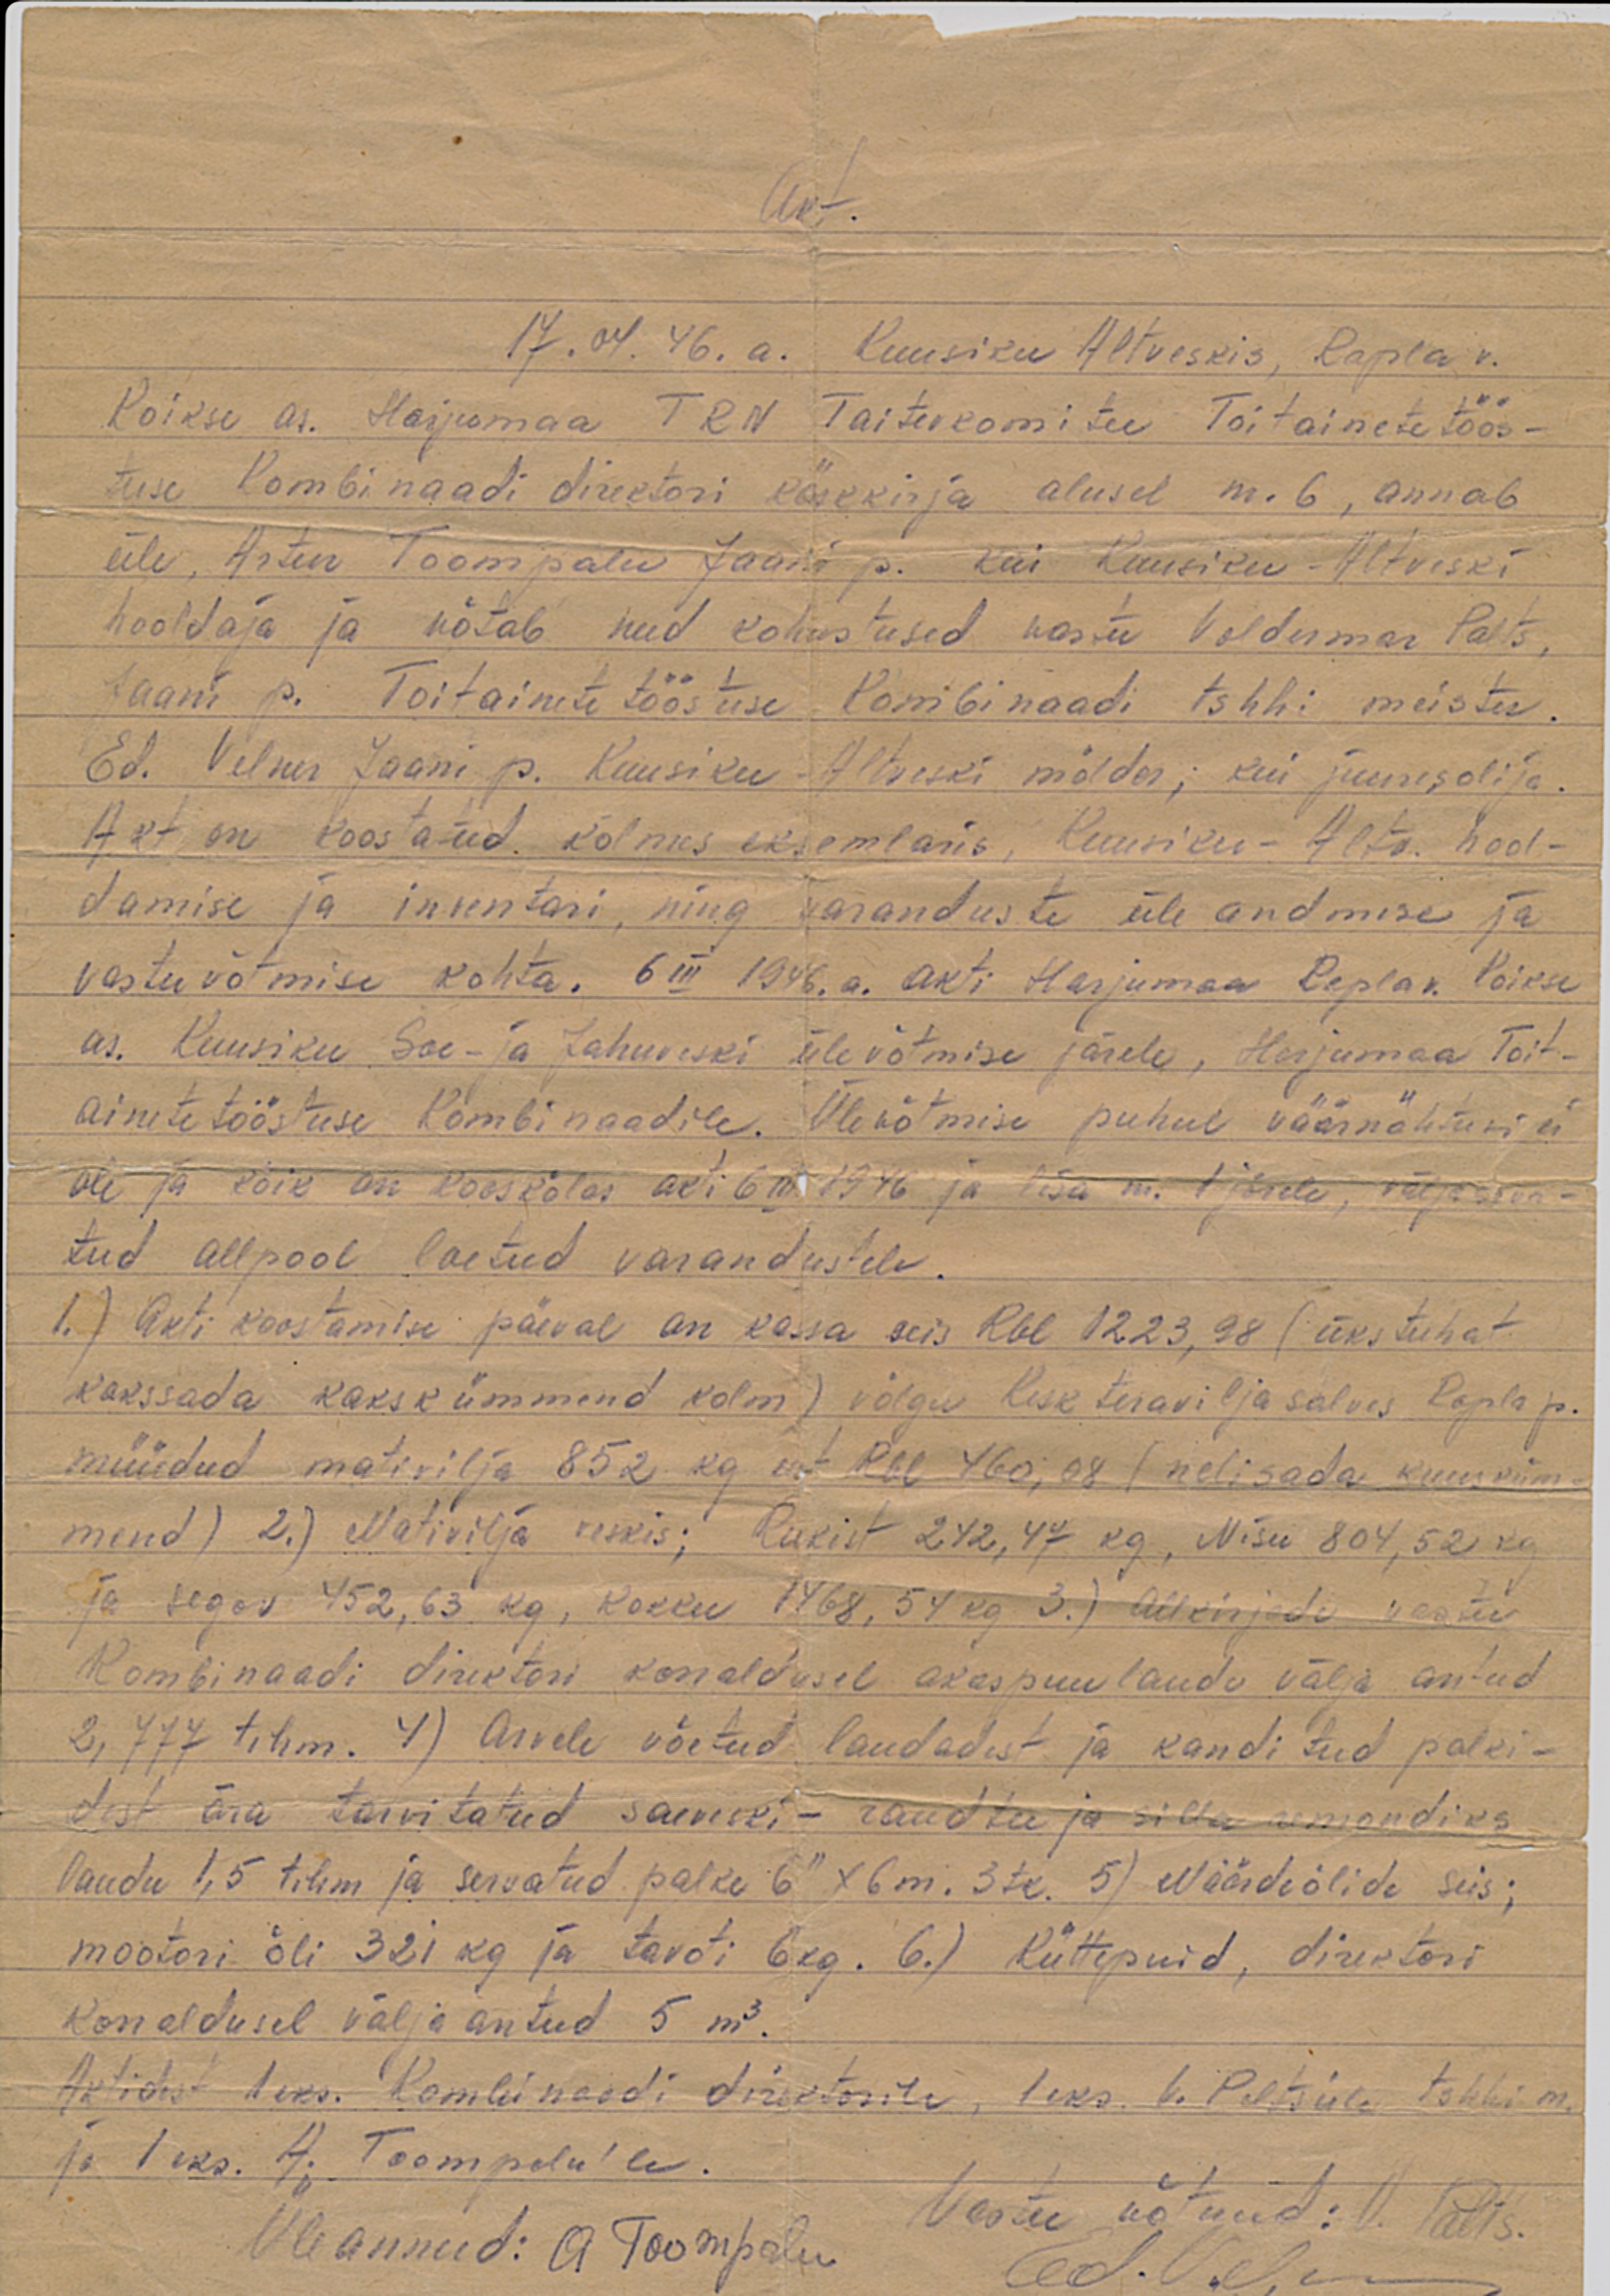 Akt.
17. 04. 46. a. Kuusiku Altveskis, Rapla v.
Koikse as. Harjumaa TRN Taitevkomitee Toitainetetöös-
tuse Kombinaadi direktori käskkirja alusel nr. 6, annab
üle, Artur Toompalu Jaani p. kui Kuusiku-Altveski
hooldaja ja võtab need kohustused vastu Voldermar Palts,
Jaani p. Toitainete tööstuse Kombinaadi tshhi meister.
Ed. Velner Jaani p. Kuusiku-Altveski mölder; kui juuresolija.
Akt on koostatud kolmes eksemlaris, Kuusiku-Altv. hool-
damise ja inventari, ning varanduste üle andmise ja
vastuvõtmise kohta. 6 III 1946. a. akti Harjumaa Rapla v. Koikse
as. Kuusiku Sae-ja Jahuveski ülevõtmise järele, Harjumaa Toit-
ainetetööstuse Kombinaadile. Ülevõtmise puhul väärnähtusi ei
ole ja kõik on kooskõlas akti 6 III 1946 ja lisa nr. 1 järele, välja arva-
tud allpool loetud varandustele.
1.) Akti koostamise päeval on kassa seis Rbl 1223,98 (ükstuhat
kakssada kakskümmend kolm) võlgu Kesk teraviljasalves Rapla p.
müüdud mativilja 852 kg eest Rbl 460,08 (nelisada kuusküm-
mend) 2.) Mativilja veskis; Rukist 242,47 kg, Nisu 804,52 kg
ja segav 452,63 kg, kokku 1468,54 kg 3.) Allkirjade vastu
Kombinaadi direktori korraldusel okaspuulaudu välja antud
2,777 tihm. 4) Arvele võetud laudadest ja kanditud palki-
dest ära tarvitatud saeveski- raudtee ja silla remondiks
laudu 1,5 tihm ja servatud palke 6" x 6m. 3 tk. 5) Määrdeõlide seis;
mootori õli 321 kg ja tavoti 6 kg. 6.) Küttepuid, direktori
korraldusel välja antud 5 m³.
Aktidest 1 eks. Kombinaadi direktorile, 1 eks. V. Paltsile tshhi m.
ja 1 eks. A. Toompalu'le.
Vastu võtnud: V. Palts.
Üleannud: A Toompalu
Ed. Velner